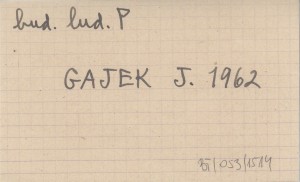 bud. lud. P
GAJEK J. 1962
BI/053/1514